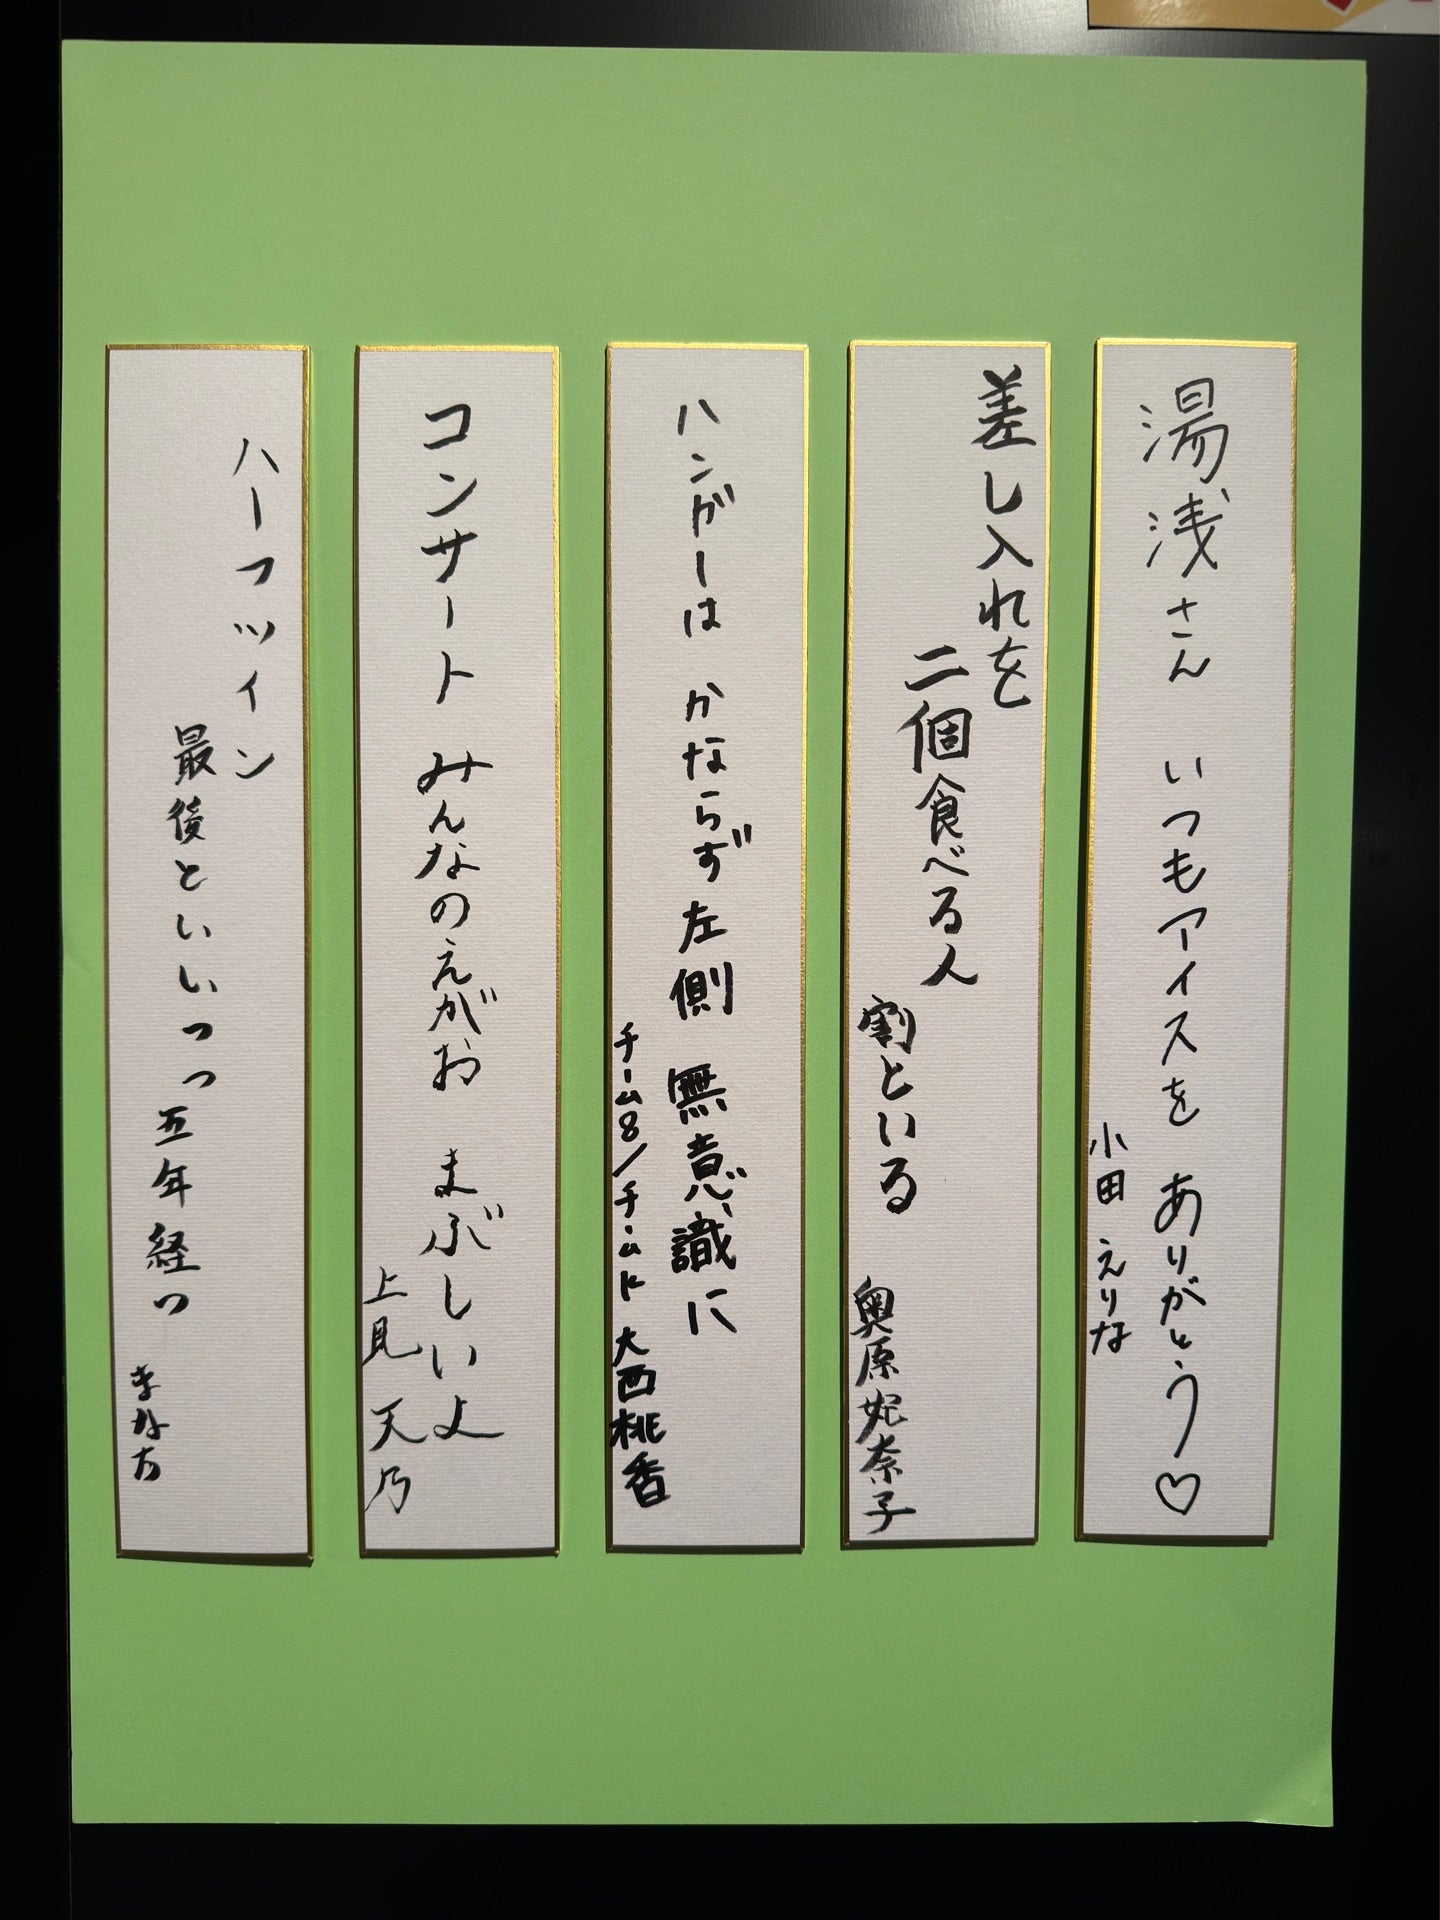 湯浅さん いつもアイスを ありがとう♡
小田 えりな
差し入れを
二個食べる人
割といる
奥原妃奈子
ハンガーは かならず左側 無意識に
チーム8/チームK 大西桃香
コンサート みんなのえがお まぶしいよ
上見 天乃
ハーフツイン
最後といいつつ五年経つ